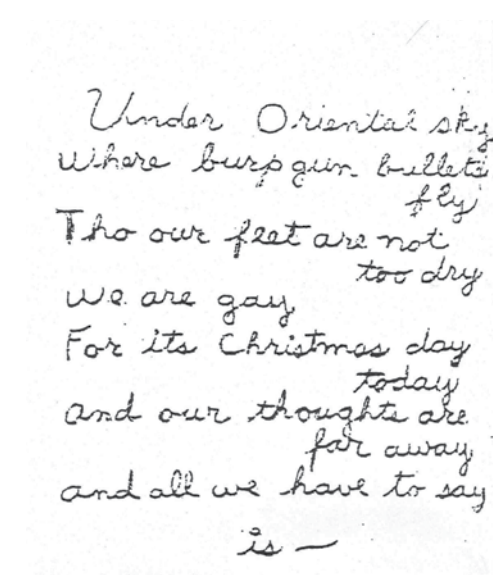 Under Oriental sky
where burp gun bullets
fly
Tho our feet are not
too dry
we are gay
For its Christmas day
today
and our thoughts are
far away
and all we have to say
is —